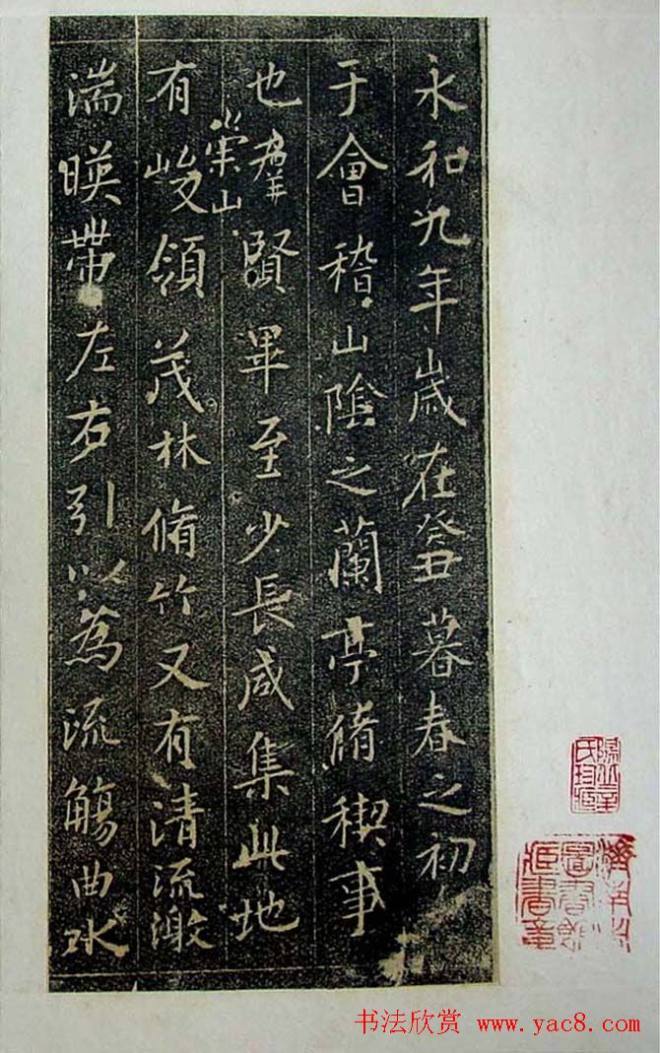 永和九年歲在癸丑暮春之初會
于會稽山陰之蘭亭脩稧事
也羣賢畢至少長咸集此地
有崇山峻領茂林脩竹又有清流激
湍暎帶左右引以為流觴曲水
書法欣赏 www.yac8.com